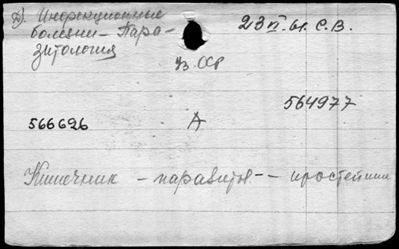 Д). Инфекционные
болезни - Пара-
зитология
23 VI. 61. С.В.
Уз. ССР
564977
566626
А
Кишечник - паразиты - - простейшие